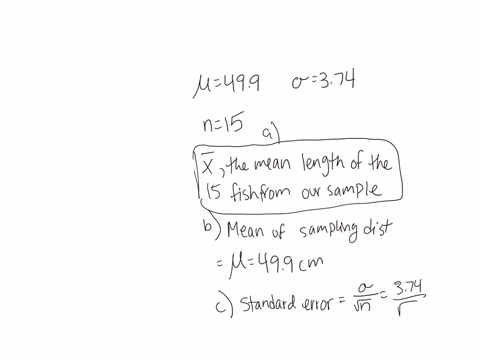 μ=49.9 σ=3.74
n=15
a)
x̅, the mean length of the
15 fish from our sample
b) Mean of sampling dist
= μ=49.9 cm
c) Standard error = σ/√n = 3.74/√